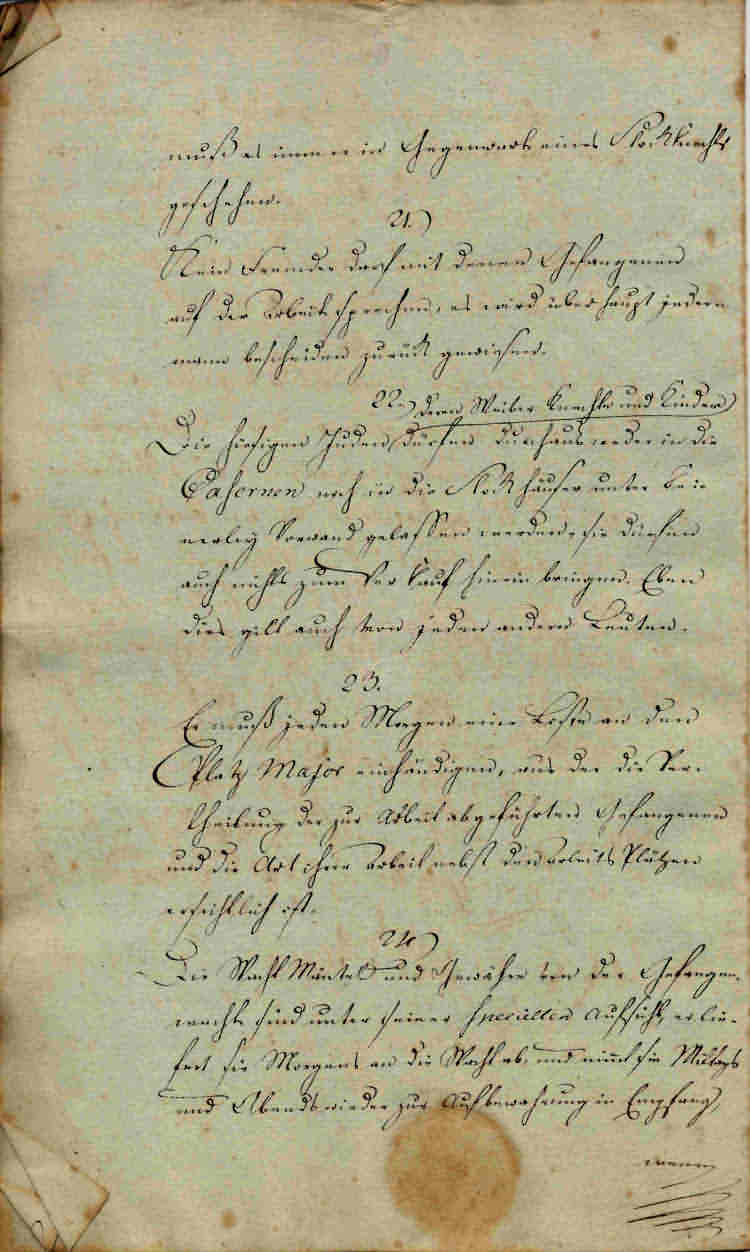 muß es immer in Gegenwart eines Stockknechts
geschehen.
21.)
Kein Fremder darf mit denen Gefangenen
auf der Arbeit sprechen, es wird überhaupt jeder
mann bescheiden zurück gewiesen.
22.) deren Weiber Knechte und Kinder)
Die hiesigen Juden dürfen durchaus weder in die
Casernen noch in die Stockhäuser unter kei-
nerley Vorwand gelassen werden, sie dürfen
auch nichts zum Verkauf hinein bringen. Eben
dies gilt auch von jeden andern Leuten.
23.
Er muß jeden Morgen eine Liste an den
Platz Major einhändigen, aus der die Ver-
theilung der zur Arbeit abgeführten Gefangenen
und die Art ihrer Arbeit nebst den Arbeits Plätzen
ersichtlich ist.
24)
Die Wacht Mäntel und Gewehre von der Gefangen-
wacht sind unter seiner speciellen Aufsicht, er lie-
fert sie Morgens an die Wacht ab, und nimt sie Mittags
und Abends wieder zur Aufbewahrung in Empfang,
wenn